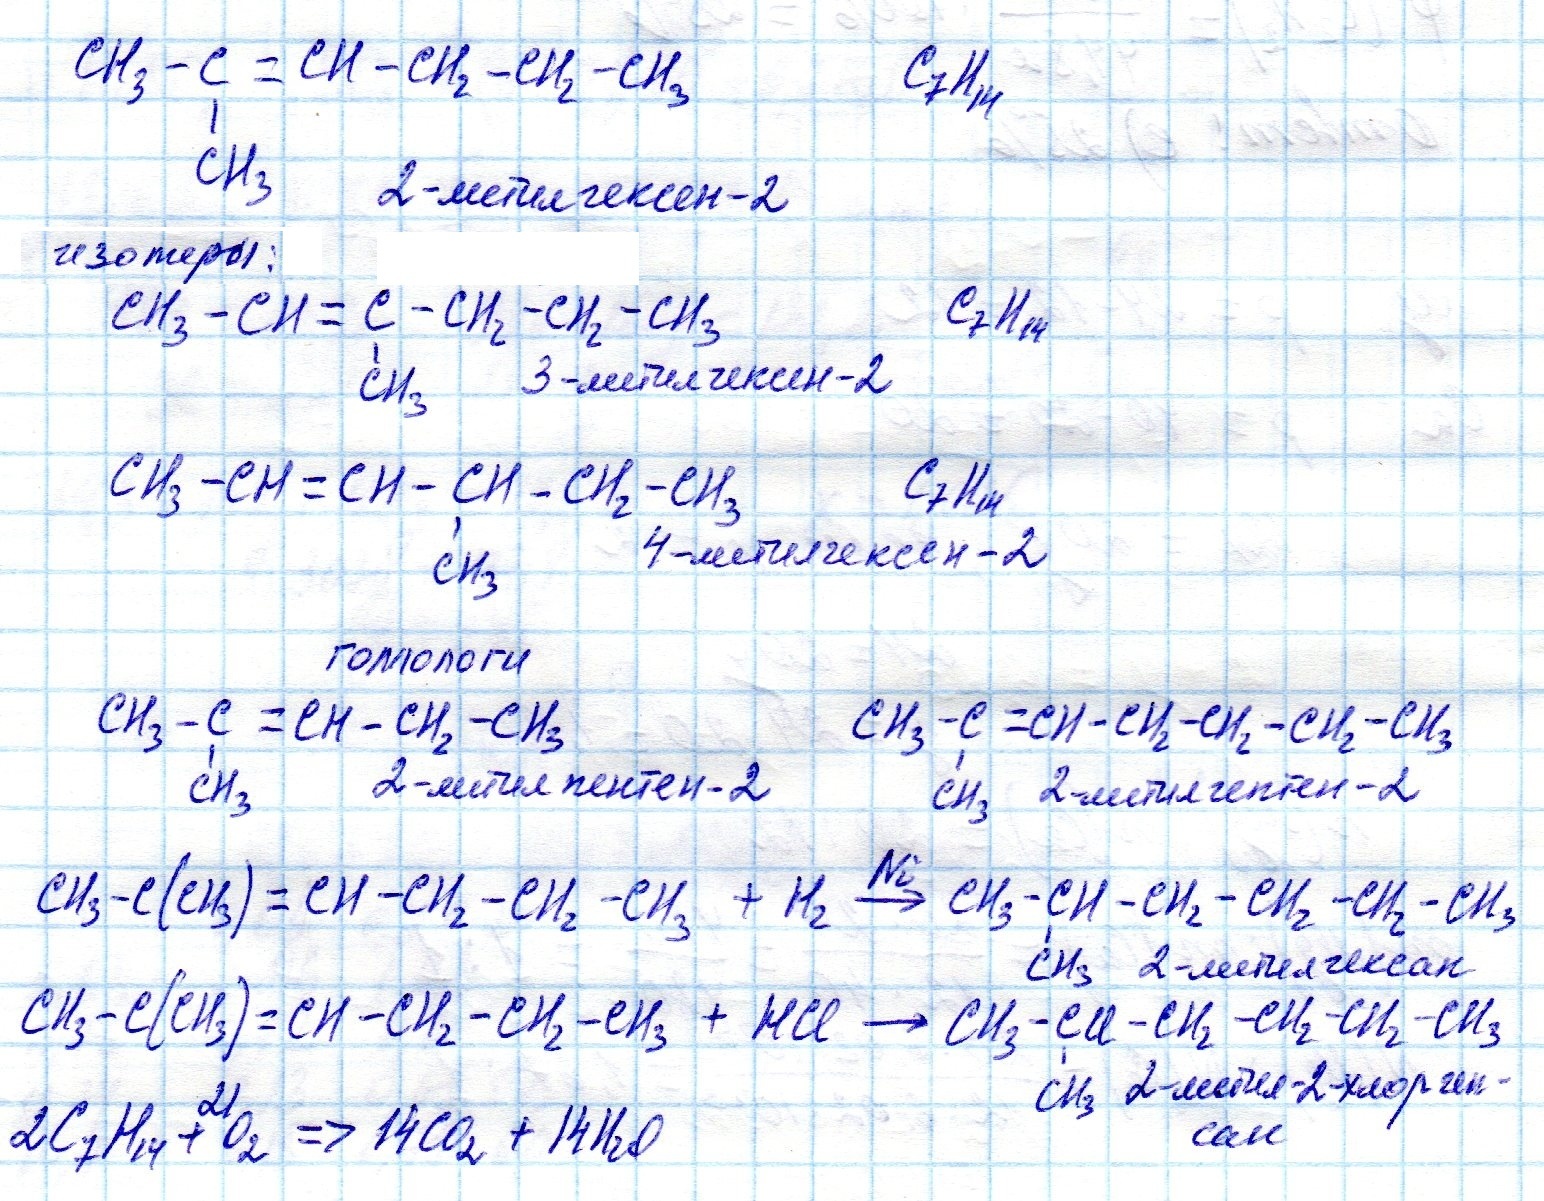 CH₃ – C = CH – CH₂ – CH₂ – CH₃ C₇H₁₄
CH₃ 2-метилгексен-2
изомеры:
CH₃ – CH = C – CH₂ – CH₂ – CH₃ C₇H₁₄
CH₃ 3-метилгексен-2
CH₃ – CH = CH – CH – CH₂ – CH₃ C₇H₁₄
CH₃ 4-метилгексен-2
гомологи
CH₃ – C = CH – CH₂ – CH₃ CH₃ – C = CH – CH₂ – CH₂ – CH₂ – CH₃
CH₃ 2-метилпентен-2 CH₃ 2-метилгептен-2
CH₃ – C(CH₃) = CH – CH₂ – CH₂ – CH₃ + H₂ Ni → CH₃ – CH – CH₂ – CH₂ – CH₂ – CH₃
CH₃ 2-метилгексан
CH₃ – C(CH₃) = CH – CH₂ – CH₂ – CH₃ + HCl → CH₃ – CCl – CH₂ – CH₂ – CH₂ – CH₃
CH₃ 2-метил-2-хлоргек-
сан
2C₇H₁₄ + 21O₂ => 14CO₂ + 14H₂O